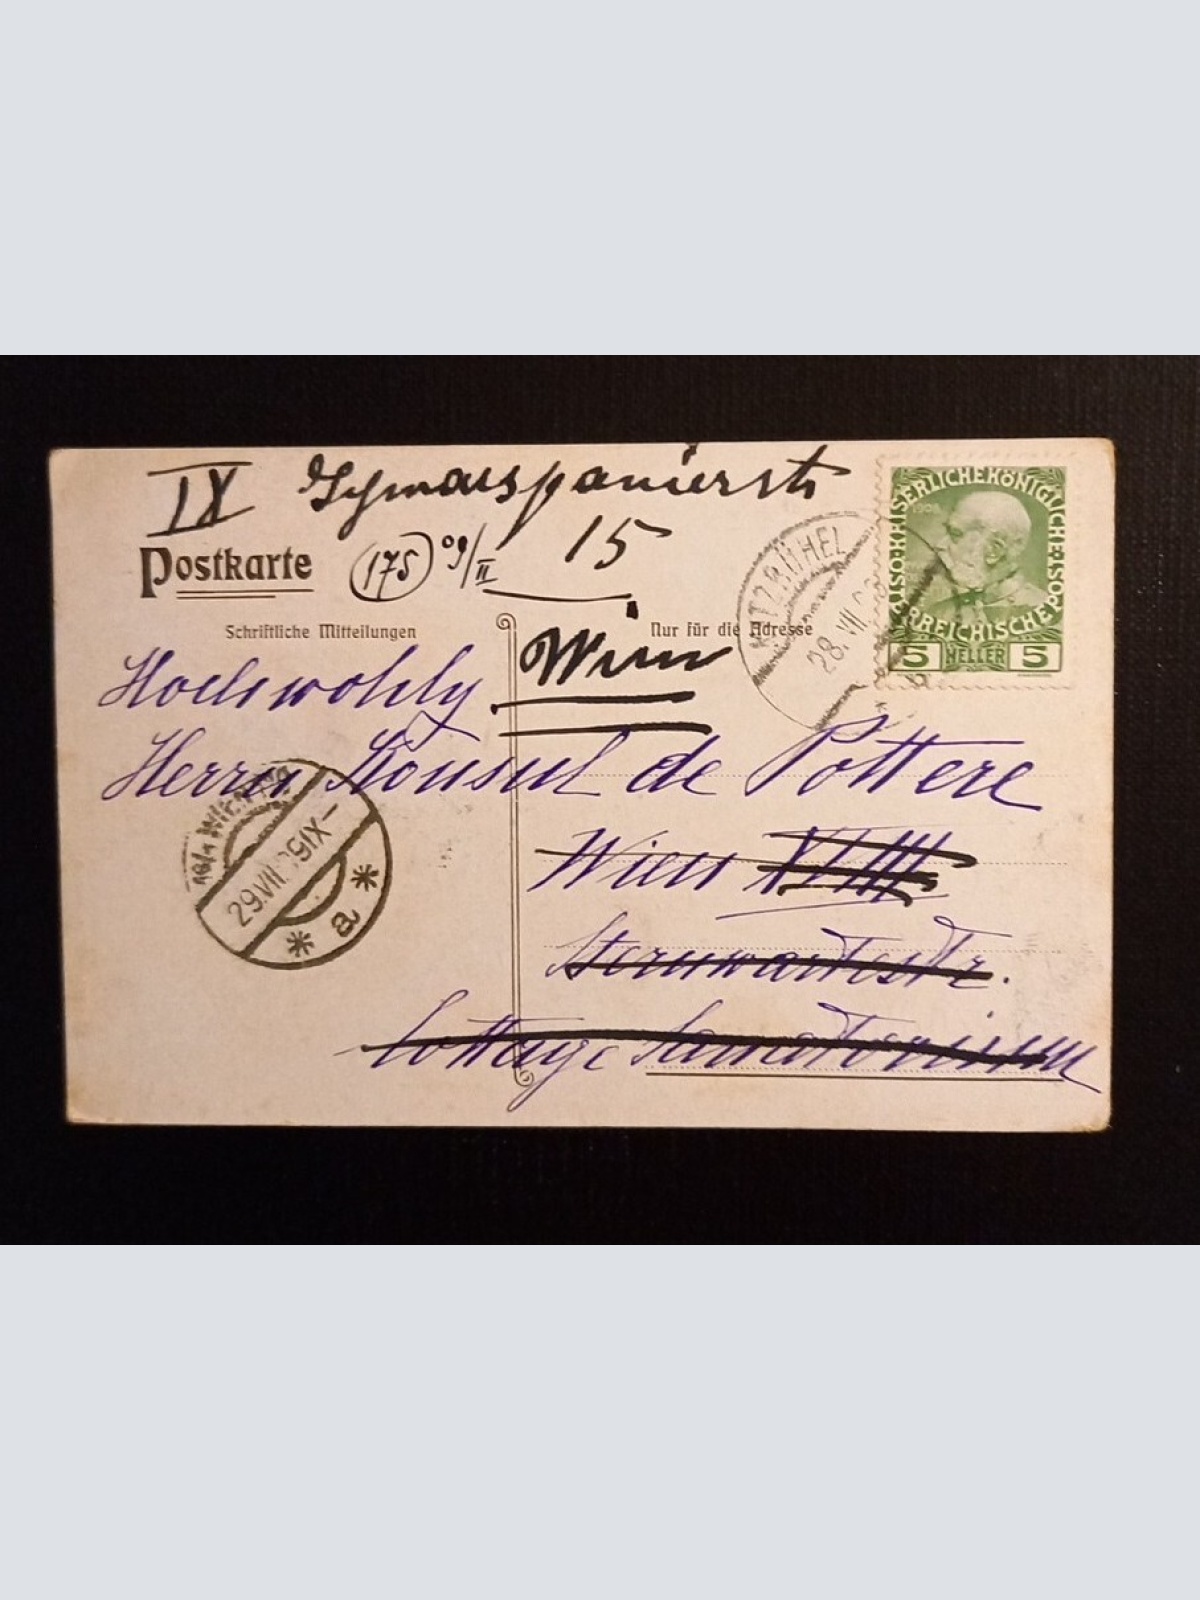 IX
15
Postkarte
175 09/II
Schriftliche Mitteilungen
Nur für die Adresse
Wien
KITZBÜHEL
28. VII.
KAISERLICHEKÖNIGLICHE
ÖSTERREICHISCHEPOST
1908
5 HELLER 5
Hochwohlg
Herrn Konsul de Pottere
Wien XVIII
Sternwartestr.
Cottage Sanatorium
WIEN
29.VII. 9IX-
* a *